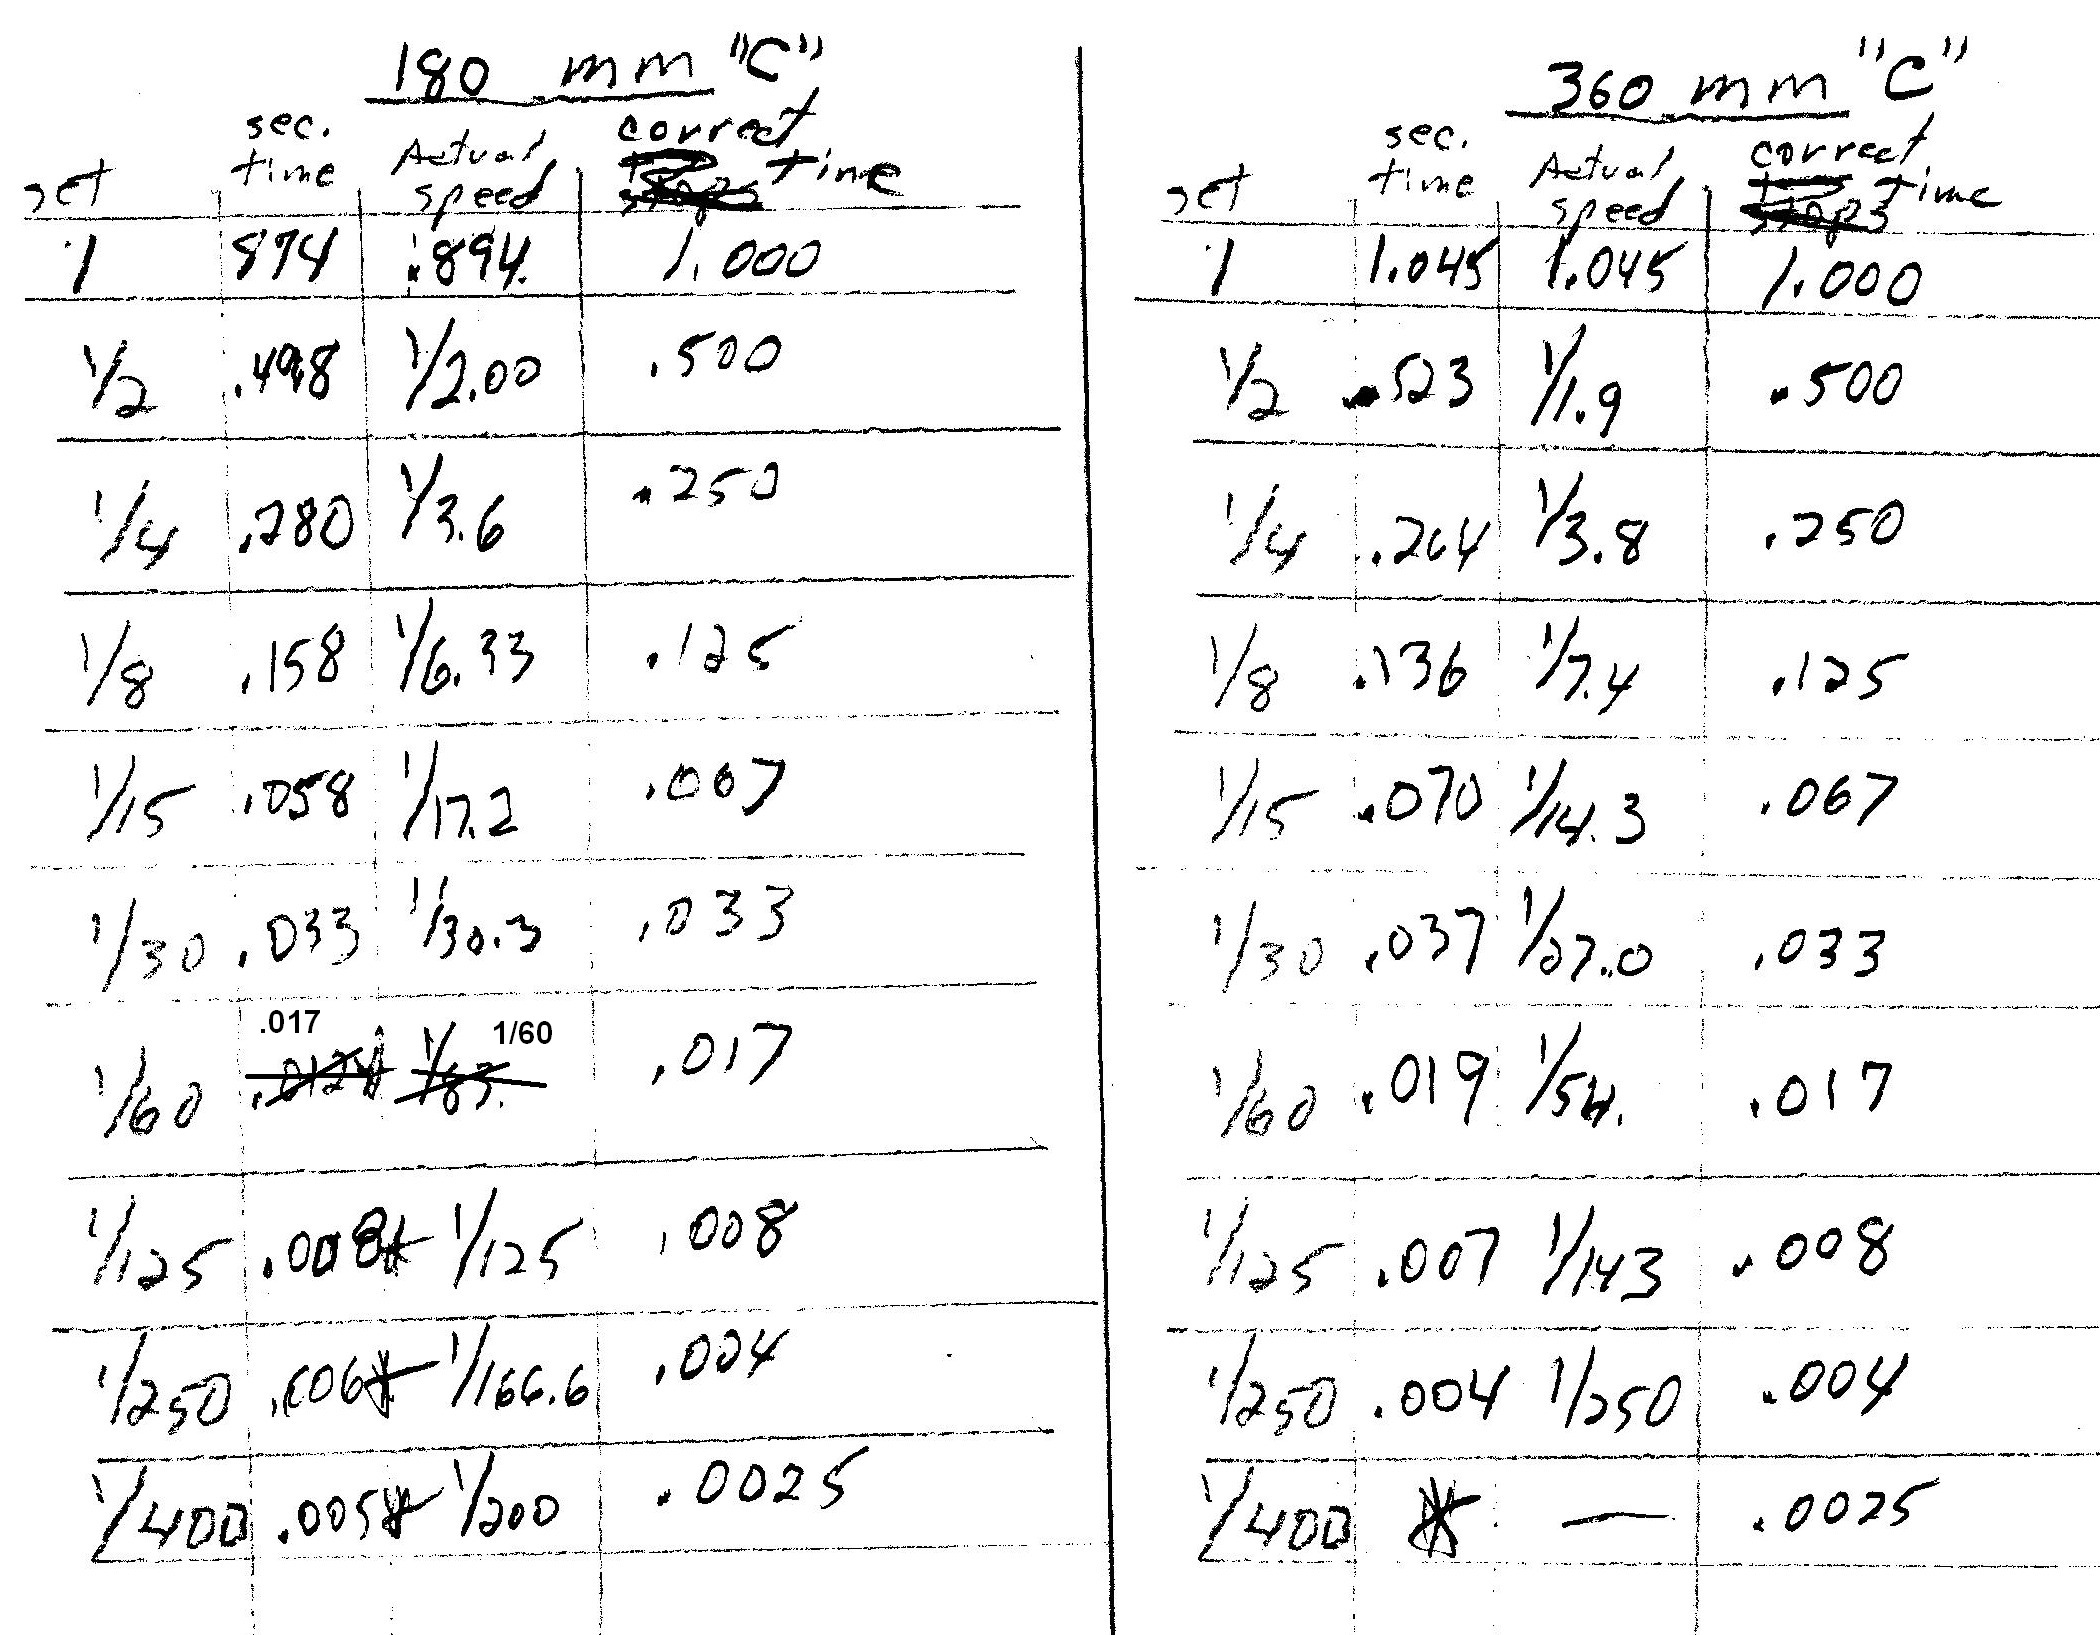 180 mm "C"
set sec. time Actual speed correct time
1 874 .894. 1.000
1/2 .498 1/2.00 .500
1/4 .280 1/3.6 .250
1/8 .158 1/6.33 .125
1/15 .058 1/17.2 .067
1/30 .033 1/30.3 .033
.017 1/60
1/60 1/83. .017
1/125 .008* 1/125 .008
1/250 .006* 1/166.6 .004
1/400 .005* 1/200 .0025
360 mm "C"
set sec. time Actual speed correct time
1 1.045 1.045 1.000
1/2 .523 1/1.9 .500
1/4 .264 1/3.8 .250
1/8 .136 1/7.4 .125
1/15 .070 1/14.3 .067
1/30 .037 1/27.0 .033
1/60 .019 1/54. .017
1/125 .007 1/143 .008
1/250 .004 1/250 .004
1/400 * — .0025